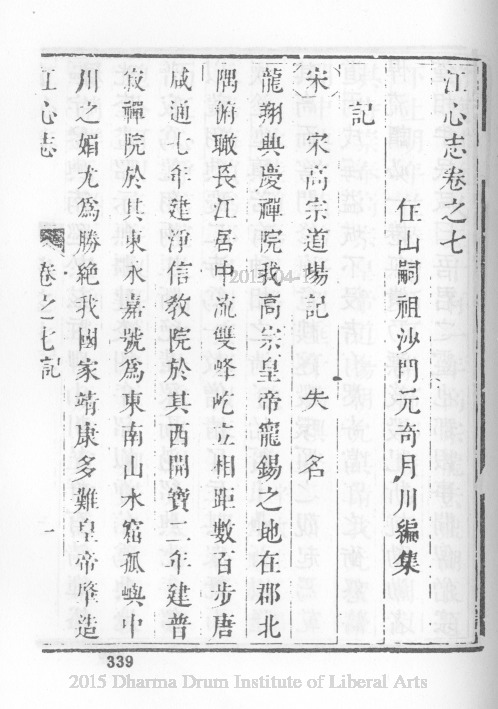 江心志卷之七
住山嗣祖沙門元奇月川編集
記
宋　宋高宗道場記　失名
龍翔興慶禪院我高宗皇帝寵錫之地在郡北
隅俯瞰長江居中流雙峰屹立相距數百步唐
咸通七年建淨信教院於其西開寶二年建普
寂禪院於其東永嘉號為東南山水窟孤嶼中
川之媚尤為勝絕我國家靖康多難皇帝肇造
江心志　卷之七記　一
339
2015 Dharma Drum Institute of Liberal Arts